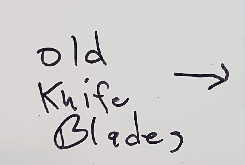 old
Knife →
Blades